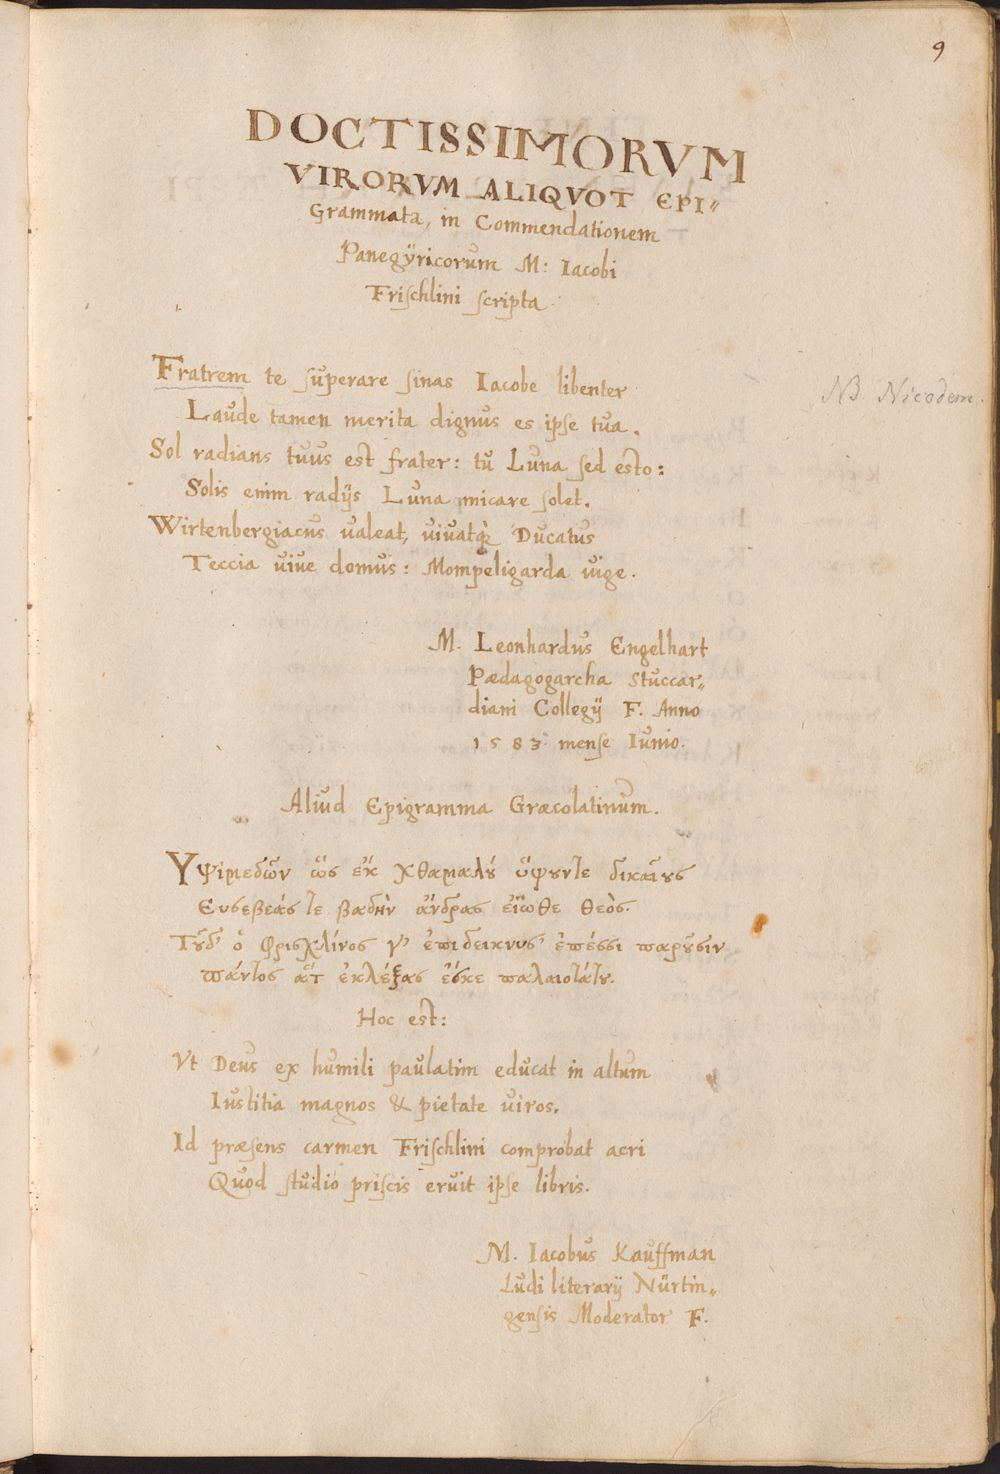 9
DOCTISSIMORVM
VIRORVM ALIQVOT EPI-
Grammata, in Commendationem
Panegÿricorum M: Iacobi
Frischlini scripta.
Fratrem te superare sinas Iacobe libenter
NB Nicodem.
Laude tamen merita dignus es ipse tua.
Sol radians tuus est frater: tu Luna sed esto:
Solis enim radijs Luna micare solet.
Wirtenbergiacus ualeat, uiuatq̀ Ducatus
Teccia uiue domus: Mompeligarda uige.
M. Leonhardus Engelhart
Pædagogarcha Stuccar-
diani Collegij F. Anno
1583. mense Iunio.
Aliud Epigramma Græcolatinum.
Υψιμεδων ὥς ἐκ χθαμαλȣ́ ὕψουντε δικαίȣς
Ευσεβεάς τε βαδὴν ἄνδρας εἴωθε θεὸς.
Τȣ̃δ' ὁ Φρισχλίνος γ' ἐπιδεικνυσ' ἐπέσσι παρȣ̃σιν
πάντος ἐκλέξας ἔσκε παλαιοτάτȣ.
Hoc est:
Vt Deus ex humili paulatim educat in altum
Iustitia magnos & pietate uiros.
Id præsens carmen Frischlini comprobat acri
Quod studio priscis eruit ipse libris.
M. Iacobus Kauffman
Ludi literarij Nürtin-
gensis Moderator F.